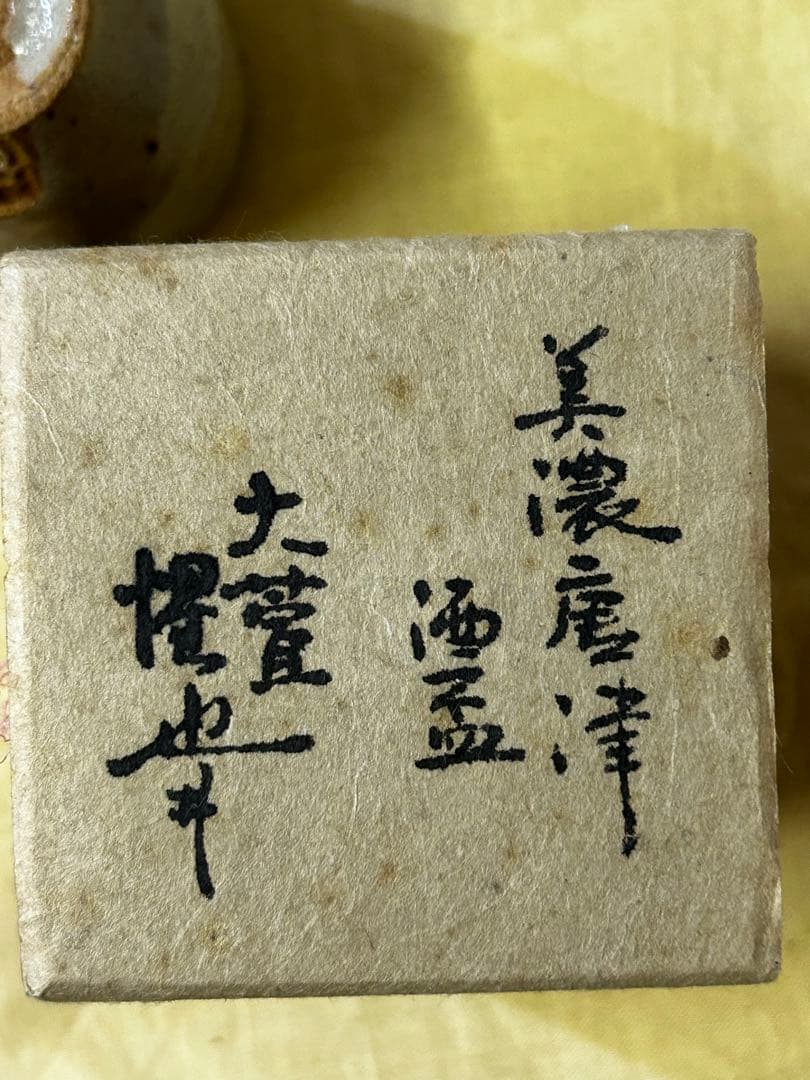 美濃唐津
酒盃
大萱
惺也